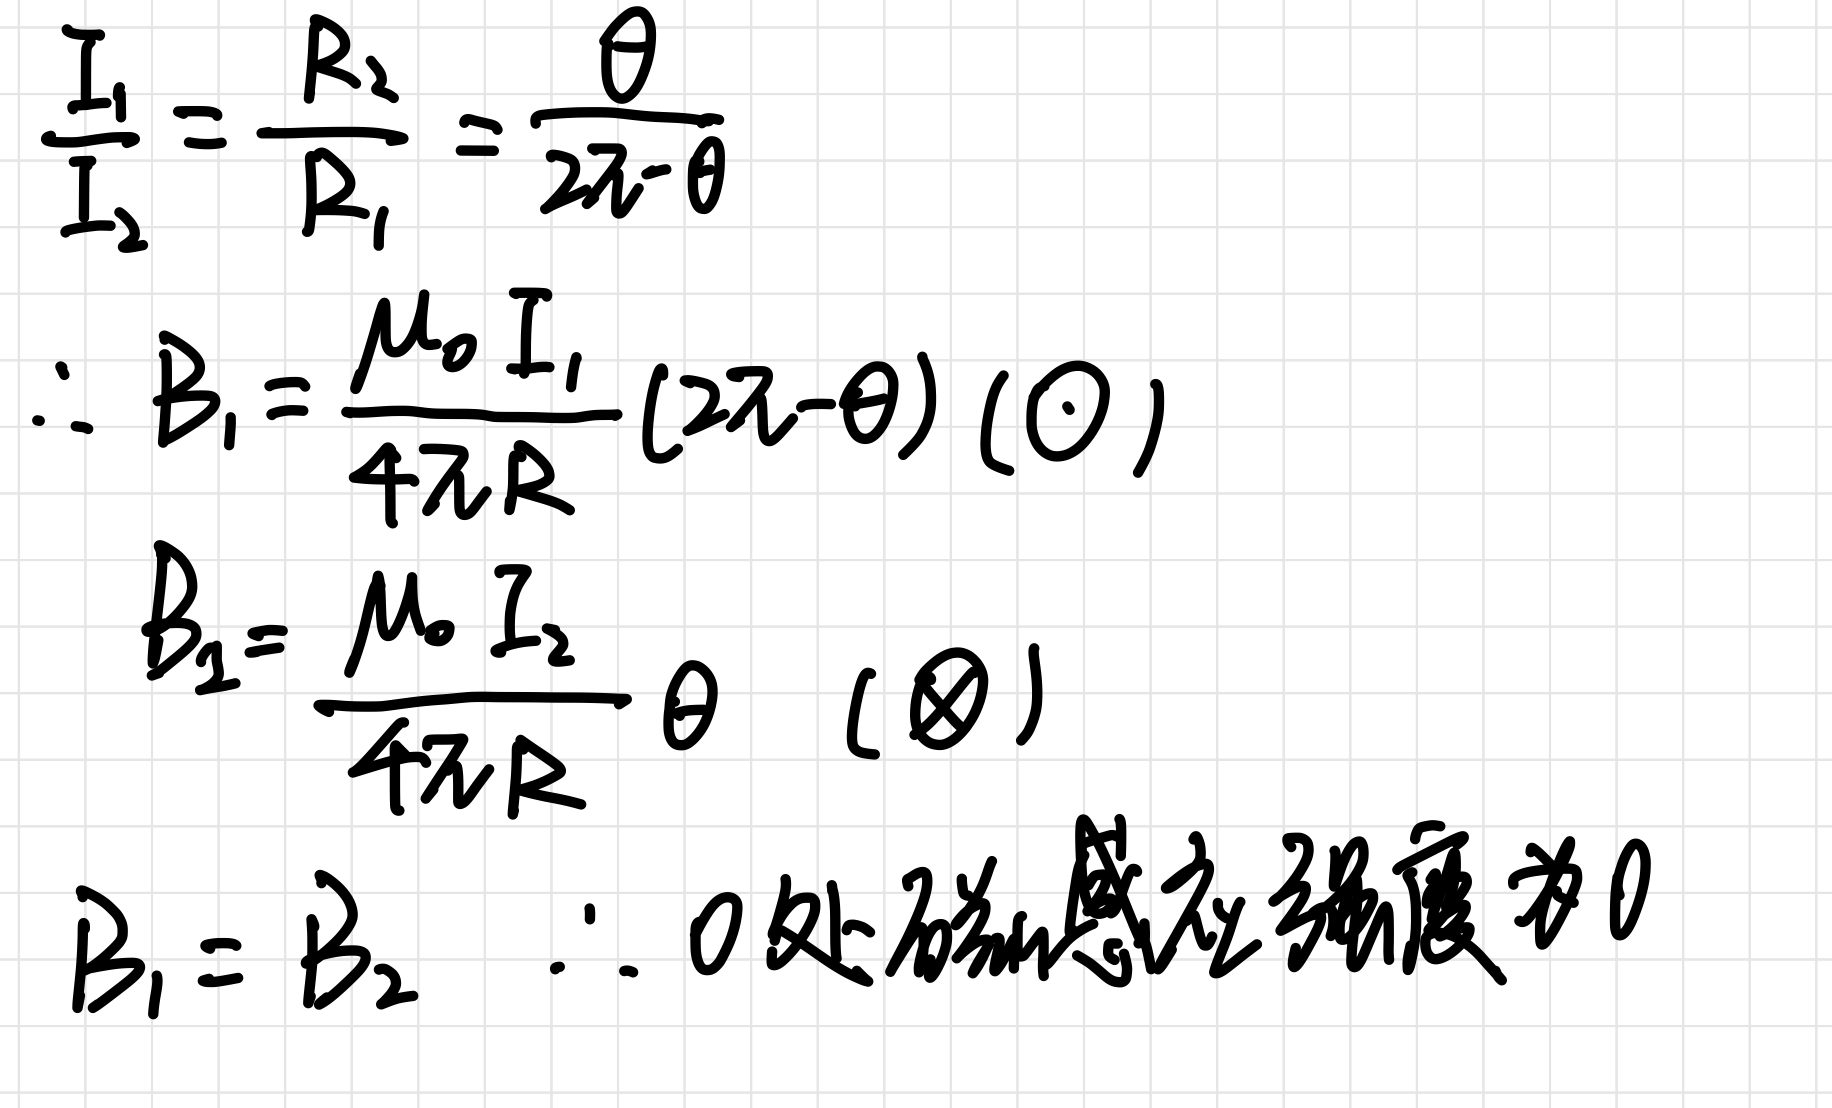 I₁/I₂ = R₂/R₁ = θ/(2π-θ)
∴ B₁ = μ₀I₁/(4πR) (2π-θ) (⊙)
B₂ = μ₀I₂/(4πR) θ (⊗)
B₁ = B₂ ∴ O处磁感应强度为0